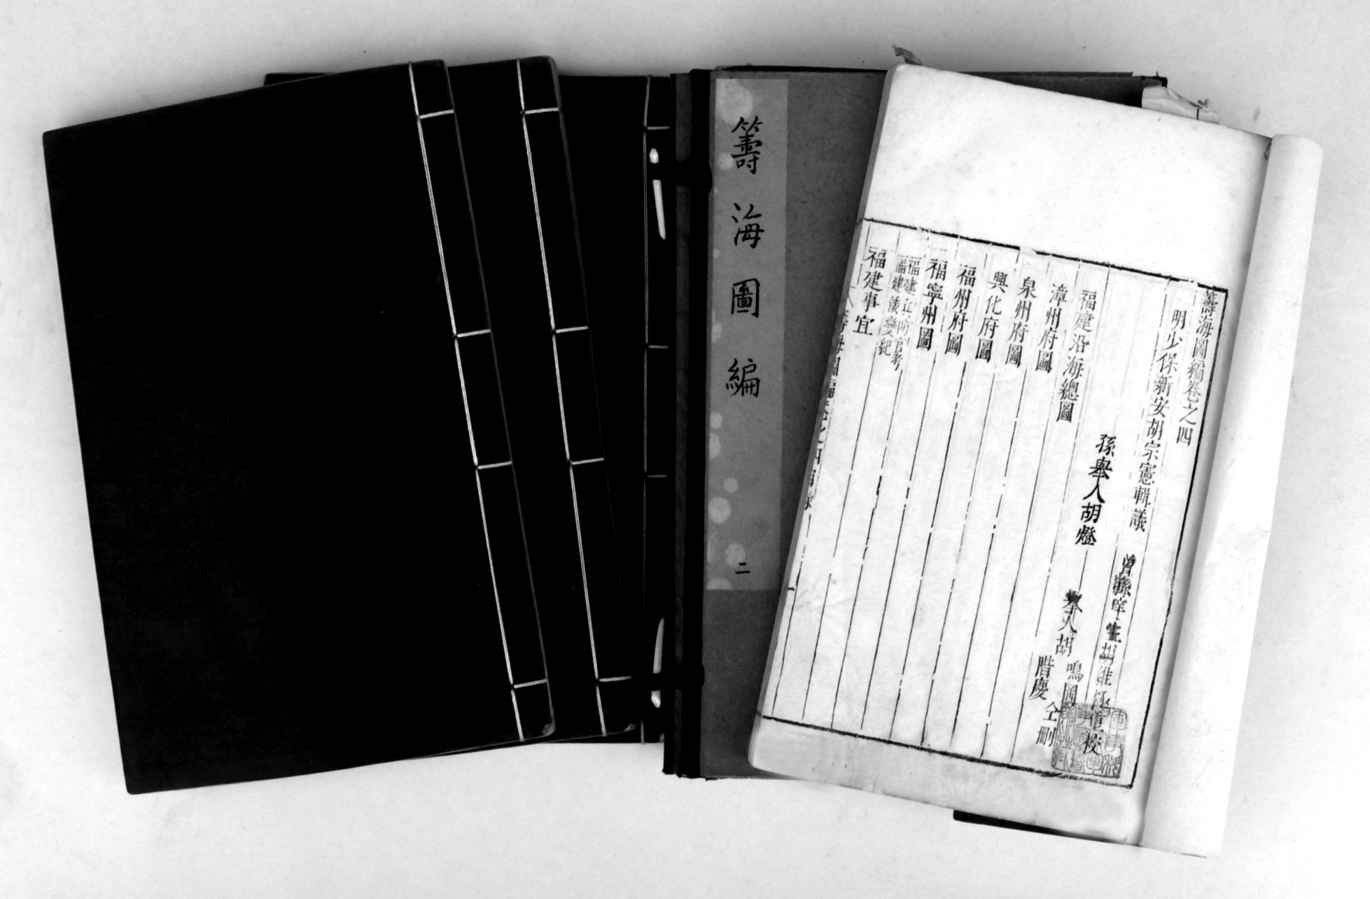 籌海圖編
二
籌海圖編卷之四
明少保新安胡宗憲輯議
曾孫庠生胡維極重校
孫舉人胡燈
舉人胡鳴岡
階慶仝刪
福建沿海總圖
漳州府圖
泉州府圖
興化府圖
福州府圖
福寧州圖
福建兵防官考
福建倭變紀
福建事宜